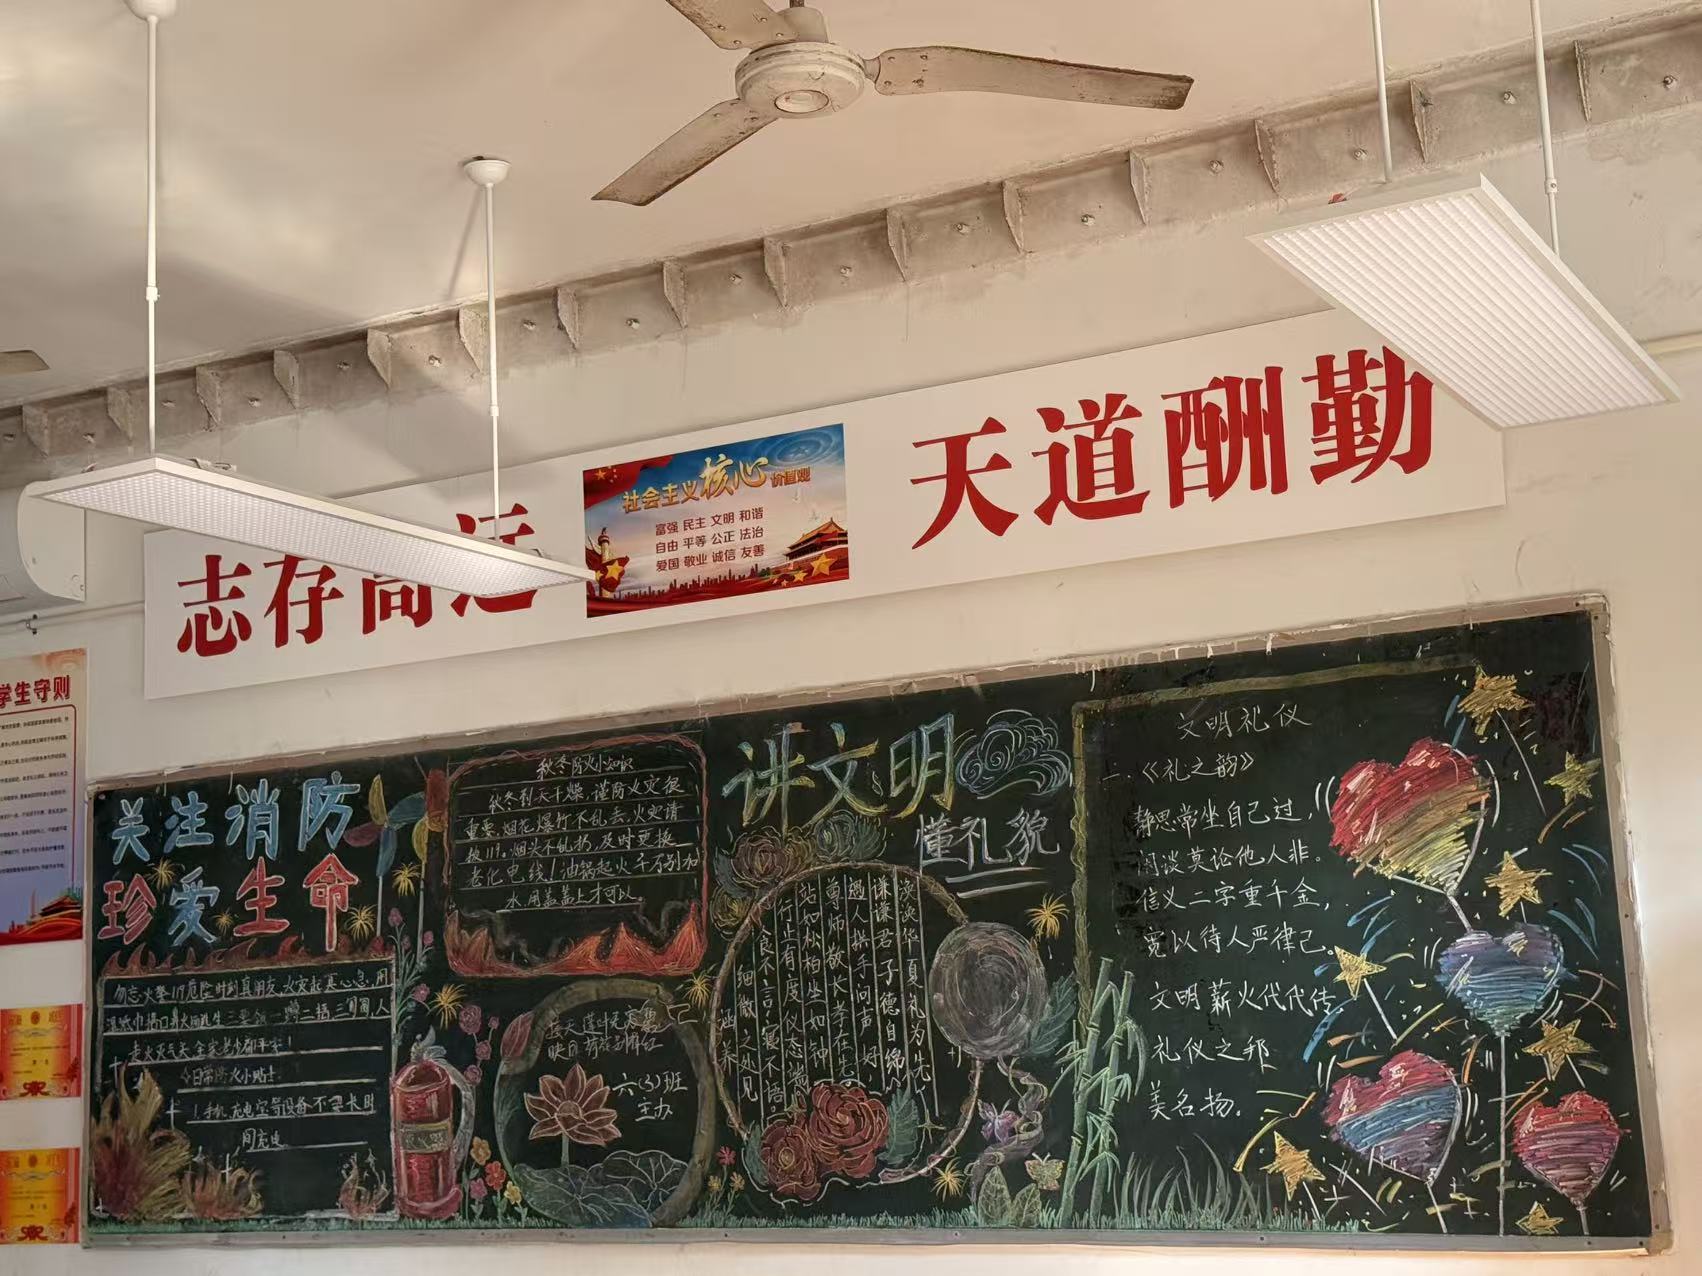 志存高远
社会主义核心价值观
富强 民主 文明 和谐
自由 平等 公正 法治
爱国 敬业 诚信 友善
天道酬勤
学生守则
关注消防
珍爱生命
勿忘火警119危险时刻真朋友,火灾起莫心急,用
日常防火小贴士
1手机充电宝等设备不要长时
间充电
秋冬防火小知识
秋冬到天干燥,谨防火灾很
重要,烟花爆竹不乱丢,火灾请
拨119。烟头不乱扔,及时更换
老化电线!油锅起火千万别加
水,用盖盖上才可以。
接天莲叶无穷碧
映日荷花别样红
六(3)班
主办
讲文明
懂礼貌
泱泱华夏礼为先,
谦谦君子德自绵。
遇人拱手问声好,
尊师敬长孝在先。
站如松柏坐如钟,
行止有度仪态端
食不言,寝不语。
细微之处见
涵养
文明礼仪
一.《礼之韵》
静思常坐自己过,
闲谈莫论他人非。
信义二字重千金,
宽以待人严律己。
文明薪火代代传
礼仪之邦
美名扬。